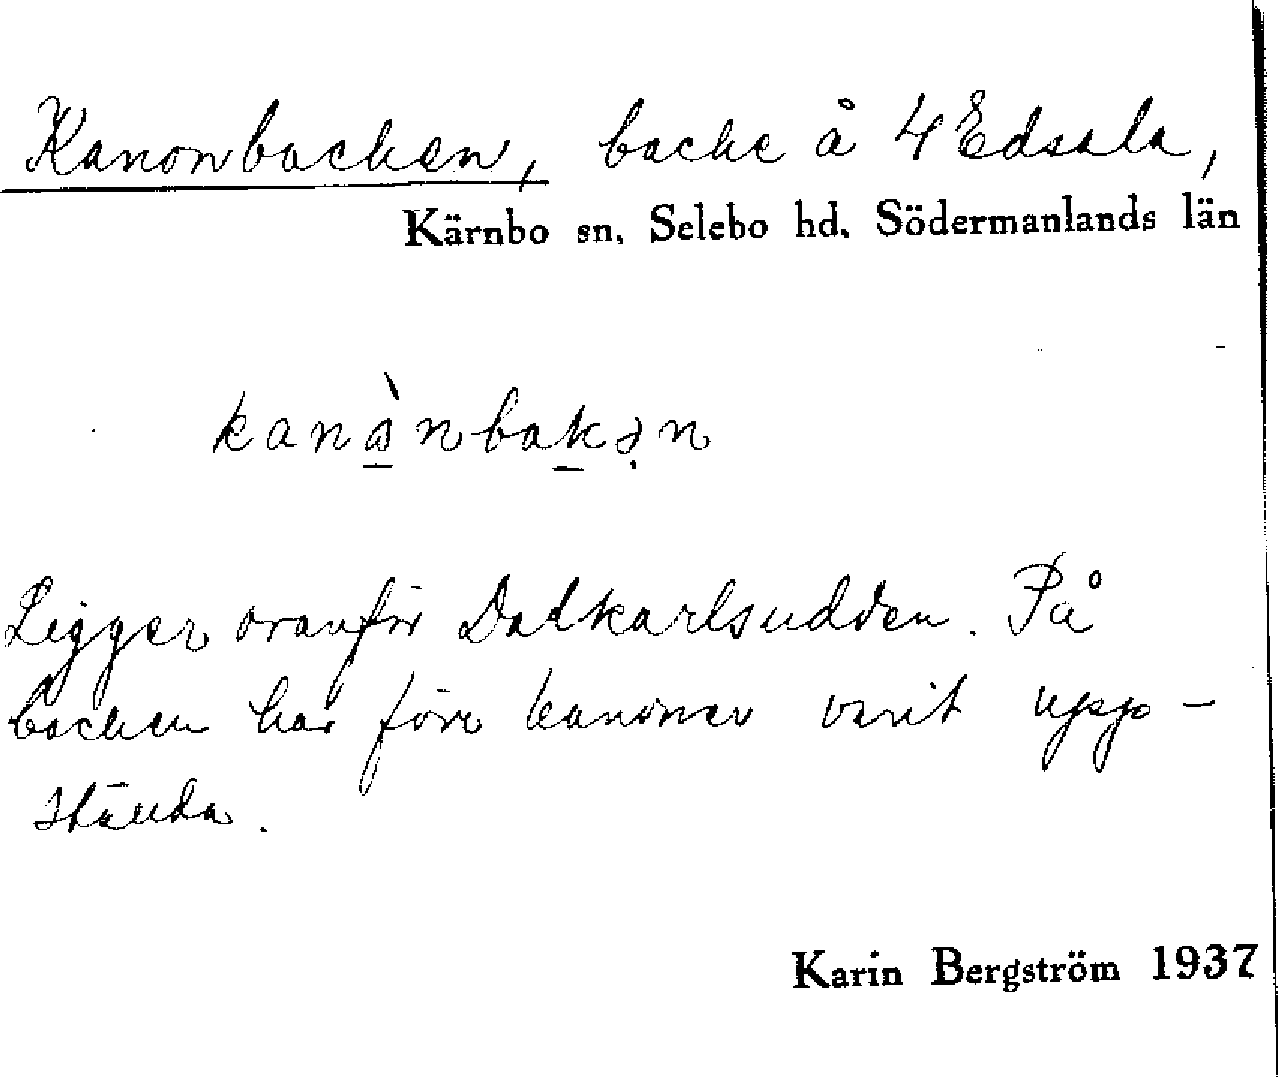 Kanonbacken, backe å 4 Edsala,
Kärnbo sn. Selebo hd. Södermanlands län
kanὰnbakən
Ligger ovanför Dalkarlsudden. På
backen har förr kanoner varit upp-
ställda.
Karin Bergström 1937